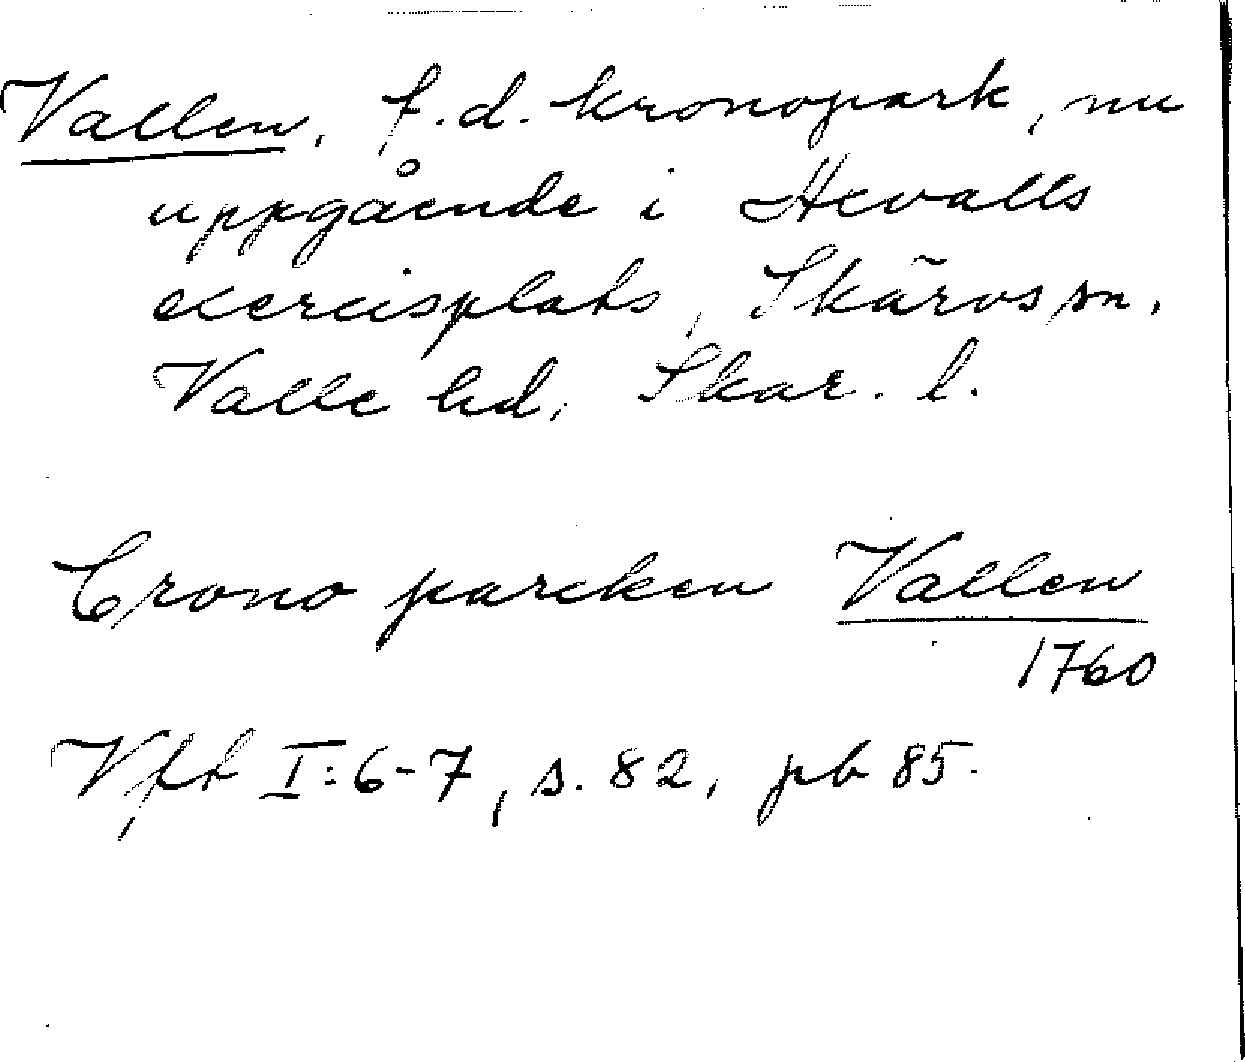 Vallen, f.d. kronopark, nu
uppgående i Hevalls
exercisplats, Skärvs sn.
Valle hd, Skar. l.
Crono parcken Vallen
1760
Vft I:6-7, s. 82, pb 85.